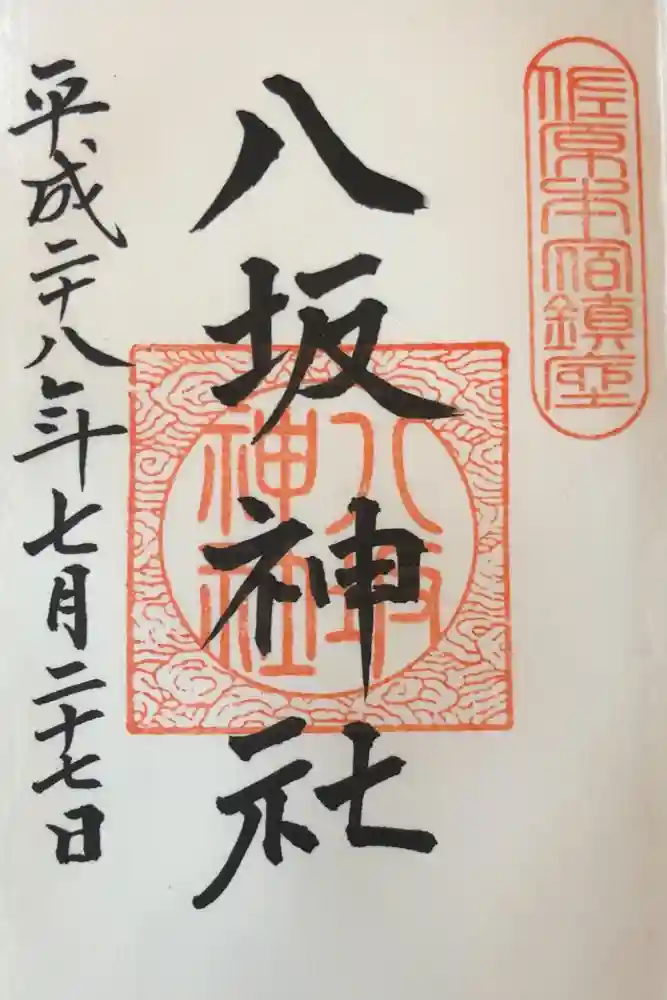 佐原本宿鎮座
八坂神社
八坂
神社
平成二十八年七月二十七日